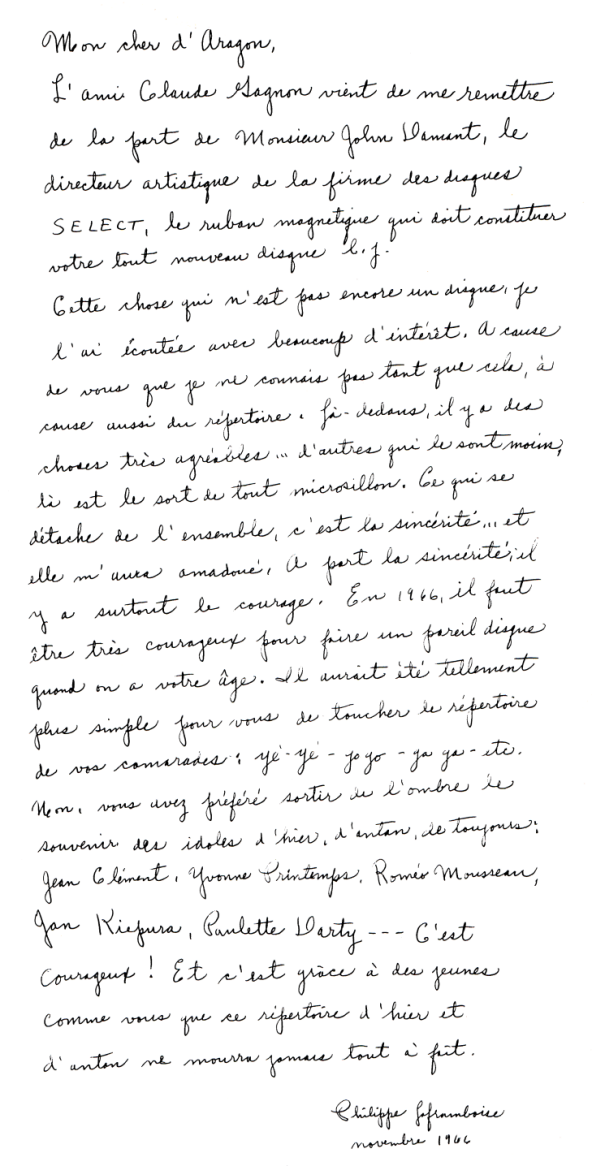 Mon cher d'Aragon,
L'ami Claude Gagnon vient de me remettre
de la part de Monsieur John Damant, le
directeur artistique de la firme des disques
SELECT, le ruban magnetique qui doit constituer
votre tout nouveau disque l.j.
Cette chose qui n'est pas encore un disque, je
l'ai écoutée avec beaucoup d'intérêt. A cause
de vous que je ne connais pas tant que cela, à
cause aussi du répertoire. Là-dedans, il y a des
choses très agréables... d'autres qui le sont moins,
là est le sort de tout microsillon. Ce qui se
détache de l'ensemble, c'est la sincérité... et
elle m'aura amadoué. A part la sincérité, il
y a surtout le courage. En 1966, il faut
être très courageux pour faire un pareil disque
quand on a votre âge. Il aurait été tellement
plus simple pour vous de toucher le répertoire
de vos camarades: yé-yé - jo go - ga ga - etc.
Non, vous avez préféré sortir de l'ombre le
souvenir des idoles d'hier, d'antan, de toujours:
Jean Clément, Yvonne Printemps, Roméo Mousseau,
Jan Kiepura, Paulette Darty --- C'est
Courageux! Et c'est grâce à des jeunes
comme vous que ce répertoire d'hier et
d'antan ne mourra jamais tout à fait.
Philippe Laframboise
novembre 1966